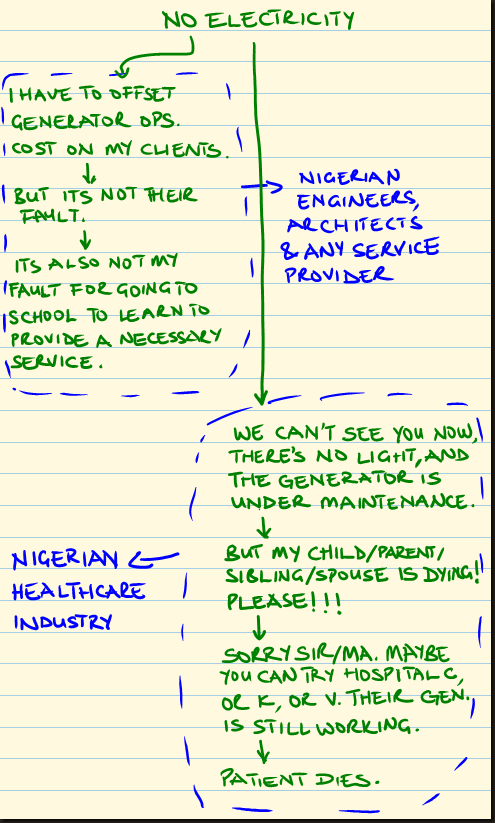 NO ELECTRICITY
I HAVE TO OFFSET
GENERATOR OPS.
COST ON MY CLIENTS.
BUT ITS NOT THEIR
FAULT.
ITS ALSO NOT MY
FAULT FOR GOING TO
SCHOOL TO LEARN TO
PROVIDE A NECESSARY
SERVICE.
NIGERIAN
ENGINEERS,
ARCHITECTS
& ANY SERVICE
PROVIDER
WE CAN'T SEE YOU NOW,
THERE'S NO LIGHT, AND
THE GENERATOR IS
UNDER MAINTENANCE.
BUT MY CHILD/PARENT/
SIBLING/SPOUSE IS DYING!
PLEASE!!!
SORRY SIR/MA. MAYBE
YOU CAN TRY HOSPITAL C,
OR K, OR V. THEIR GEN.
IS STILL WORKING.
PATIENT DIES.
NIGERIAN
HEALTHCARE
INDUSTRY